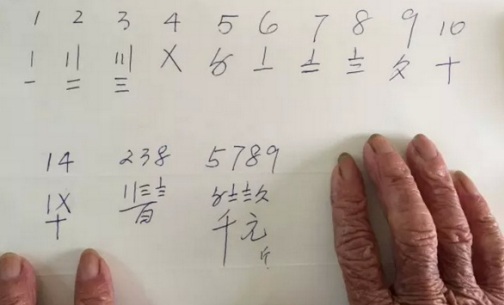 1 2 3 4 5 6 7 8 9 10
〡 〢 〣 〤 〥 〦 〧 〨 〩 十
一 二 三
14 238 5789
〡〤 〢三〨 〥〧〨〩
十 百 千元
斤